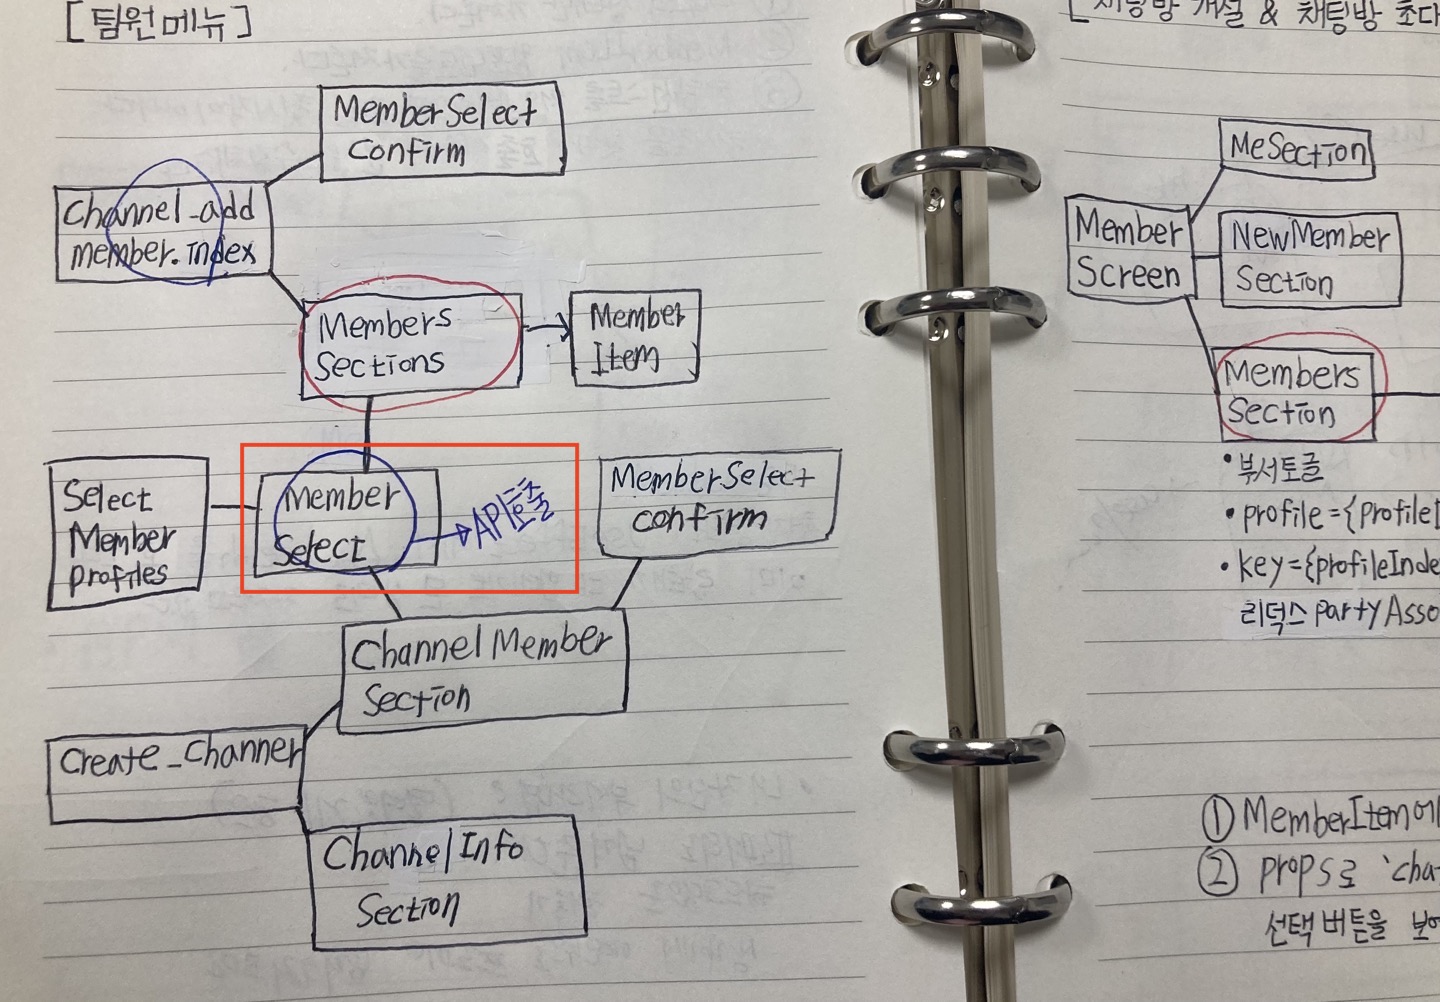 [팀원메뉴]
MemberSelect
Confirm
Channel_add
member.index
Members
Sections
Member
Item
Select
Member
profiles
Member
Select
API호출
MemberSelect
confirm
Channel Member
Section
Create_Channer
Channel Info
Section
[채팅방 개설 & 채팅방 초다
MeSection
Member
Screen
NewMember
Section
Members
Section
• 부서토글
• profile={ProfileI
• key={profileInde
리덕스 partyAsso
① MemberItem에
② props로 'cha
선택 버튼을 보여